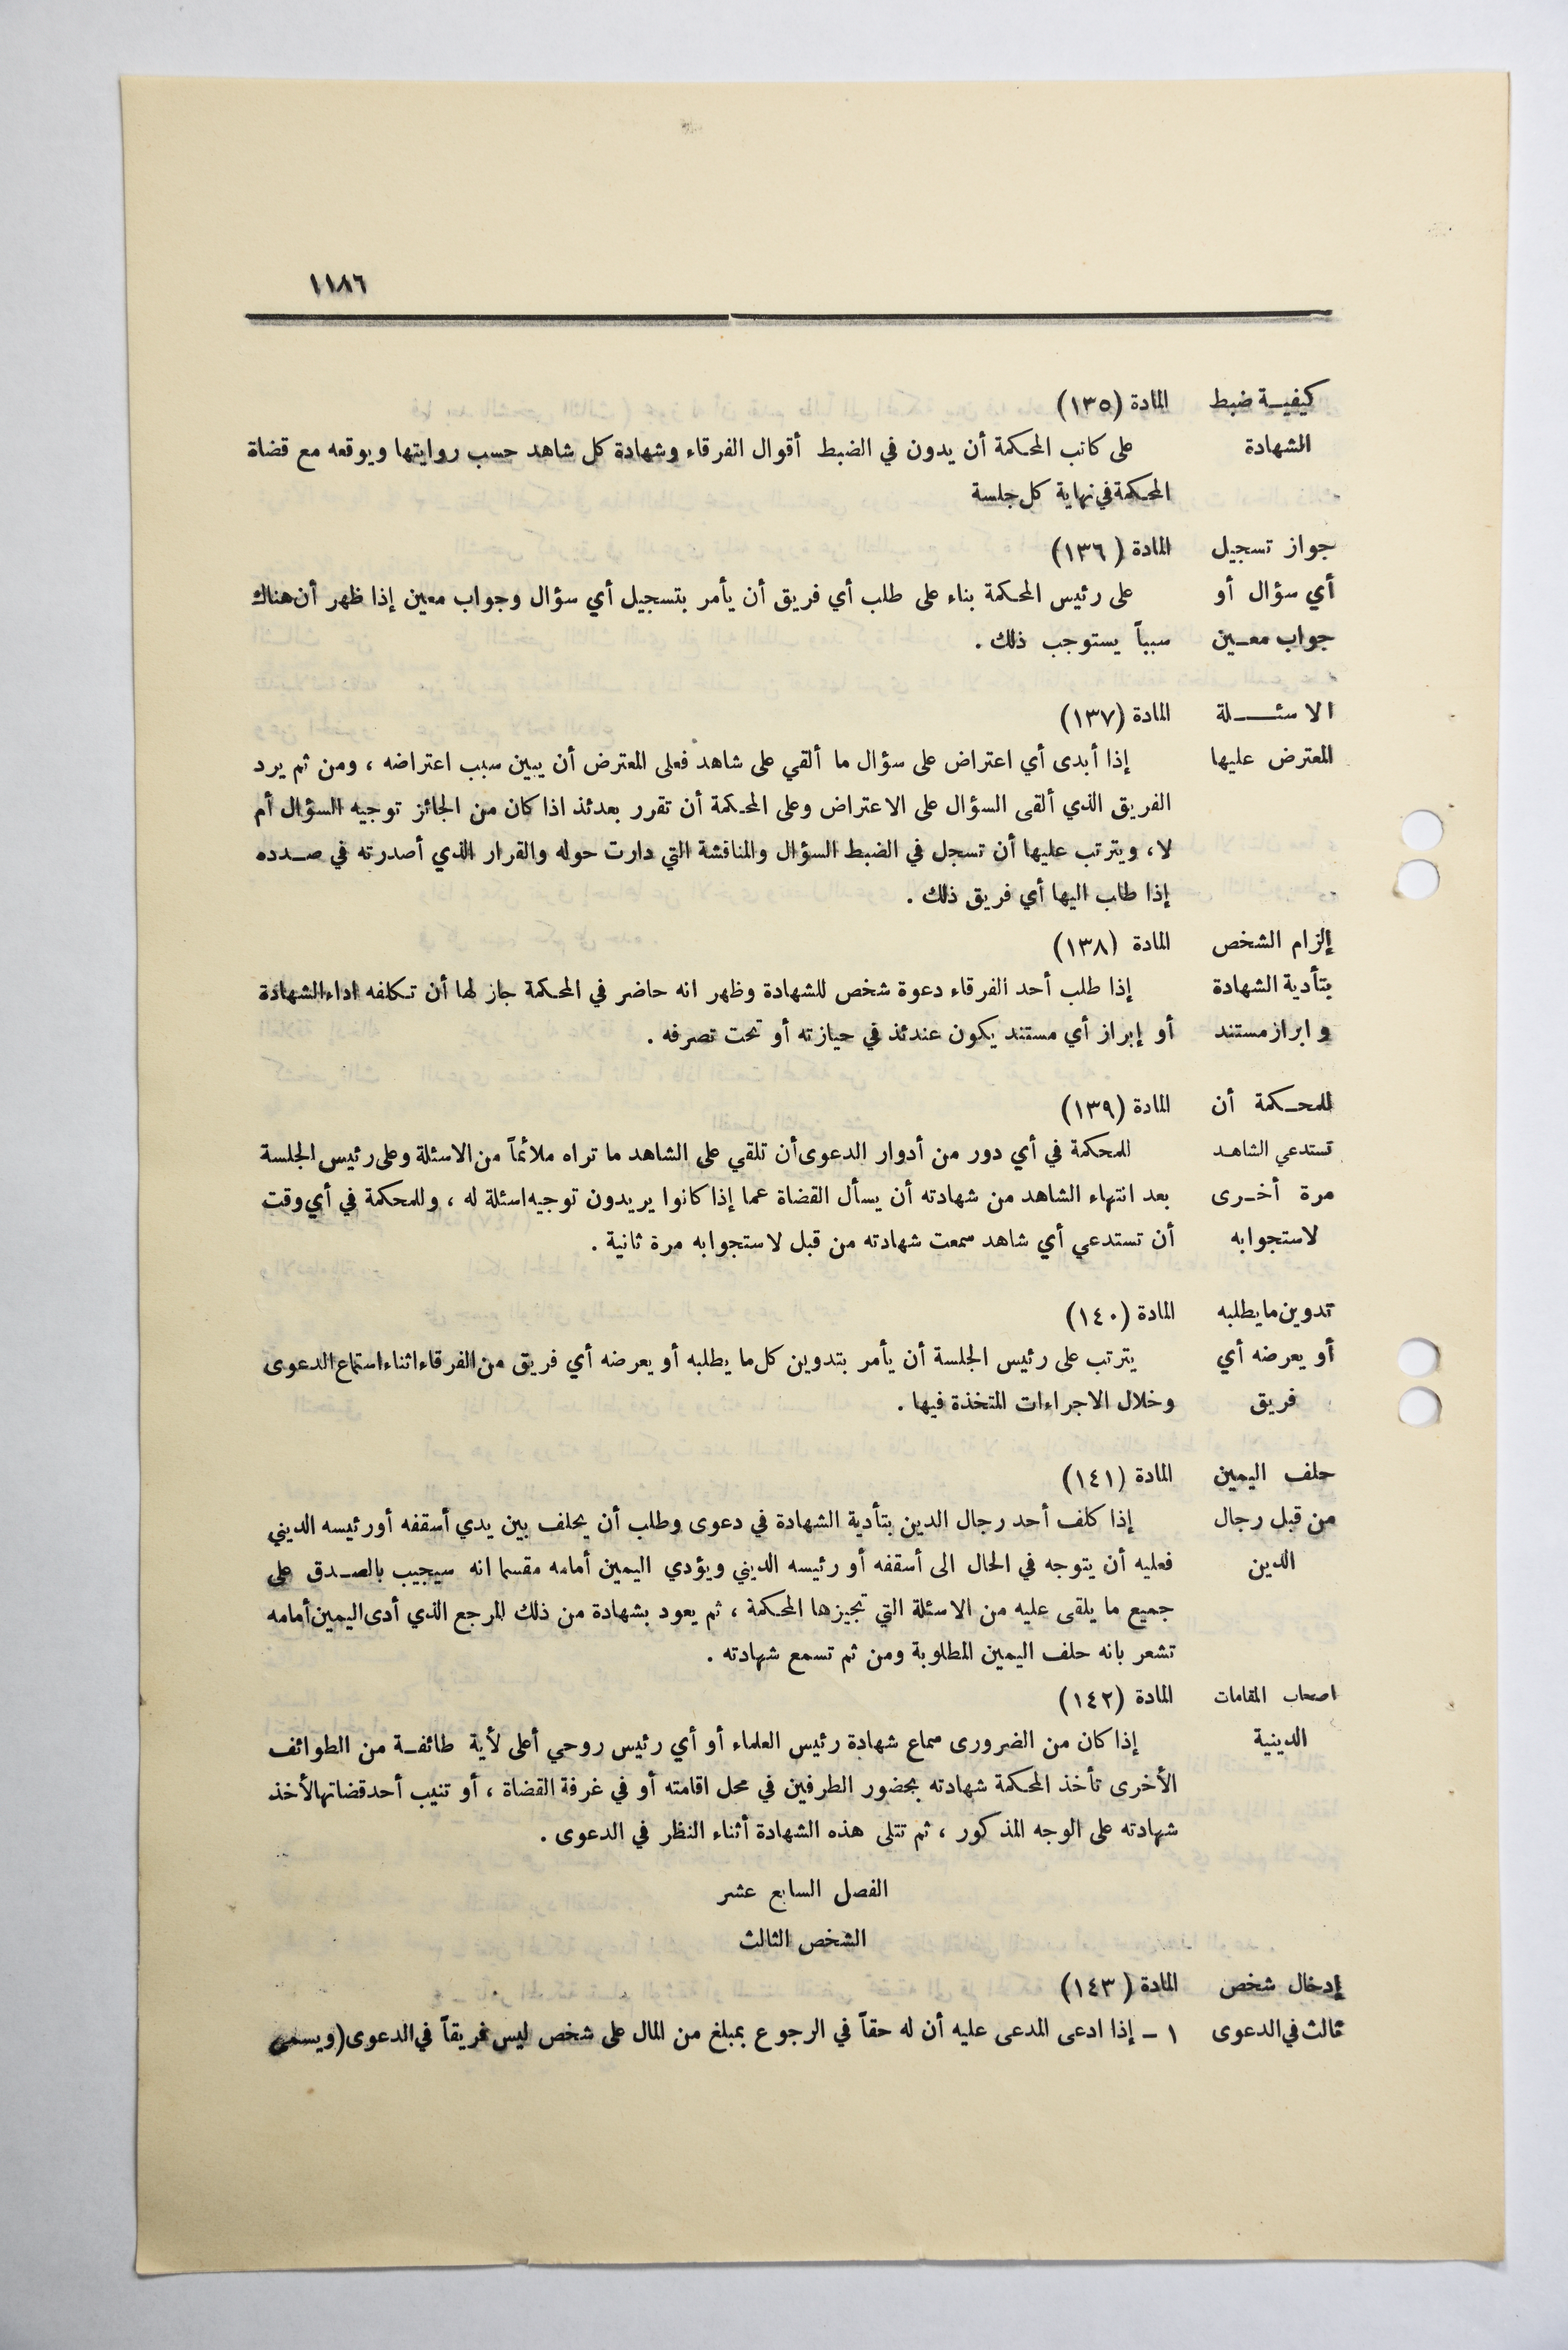 ١١٨٦
كيفيــة ضبط المادة (١٣٥)
الشهادة على كاتب المحكمة أن يدون في الضبط أقوال الفرقاء وشهادة كل شاهد حسب روايتها ويوقعه مع قضاة
المحكمة في نهاية كل جلسة
جواز تسجيل المادة (١٣٦)
أي سؤال أو على رئيس المحكمة بناء على طلب أي فريق أن يأمر بتسجيل أي سؤال وجواب معين إذا ظهر أن هناك
جواب معــين سبباً يستوجب ذلك .
الاسئـــلة المادة (١٣٧)
المعترض عليها إذا أبدى أي اعتراض على سؤال ما ألقي على شاهد فعلى المعترض أن يبين سبب اعتراضه ، ومن ثم يرد
الفريق الذي ألقى السؤال على الاعتراض وعلى المحكمة أن تقرر بعدئذ اذا كان من الجائز توجيه السؤال أم
لا، ويترتب عليها أن تسجل في الضبط السؤال والمناقشة التي دارت حوله والقرار الذي أصدرته في صــدده
إذا طلب اليها أي فريق ذلك .
إلزام الشخص المادة (١٣٨)
بتأدية الشهادة إذا طلب أحد الفرقاء دعوة شخص للشهادة وظهر انه حاضر في المحكمة جاز لها أن تكلفه اداء الشهادة
وابراز مستند أو إبراز أي مستند يكون عندئذ في حيازته أو تحت تصرفه .
للمحــكمة أن المادة (١٣٩)
تستدعي الشاهـد للمحكمة في أي دور من أدوار الدعوى أن تلقي على الشاهد ما تراه ملائماً من الاسئلة وعلى رئيس الجلسة
مرة أخــرى بعد انتهاء الشاهد من شهادته أن يسأل القضاة عما إذا كانوا يريدون توجيه اسئلة له ، وللمحكمة في أي وقت
لاستجوابه أن تستدعي أي شاهد سمعت شهادته من قبل لاستجوابه مرة ثانية .
تدوين ما يطلبه المادة (١٤٠)
أو يعرضه أي يترتب على رئيس الجلسة أن يأمر بتدوين كل ما يطلبه أو يعرضه أي فريق من الفرقاء اثناء استماع الدعوى
فريق وخلال الاجراءات المتخذة فيها .
حلف اليمين المادة (١٤١)
من قبل رجال إذا كلف أحد رجال الدين بتأدية الشهادة في دعوى وطلب أن يحلف بين يدي أسقفه أو رئيسه الديني
الدين فعليه أن يتوجه في الحال الى أسقفه أو رئيسه الديني ويؤدي اليمين أمامه مقسما انه سيجيب بالصــدق على
جميع ما يلقى عليه من الاسئلة التي تجيزها المحكمة ، ثم يعود بشهادة من ذلك المرجع الذي أدى اليمين أمامه
تشعر بانه حلف اليمين المطلوبة ومن ثم تسمع شهادته .
اصحاب المقامات المادة (١٤٢)
الدينية إذا كان من الضرورى سماع شهادة رئيس العلماء أو أي رئيس روحي أعلى لأية طائفــة من الطوائف
الأخرى تأخذ المحكمة شهادته بحضور الطرفين في محل اقامته أو في غرفة القضاة ، أو تنيب أحد قضاتها لأخذ
شهادته على الوجه المذكور ، ثم تتلى هذه الشهادة أثناء النظر في الدعوى .
الفصل السابع عشر
الشخص الثالث
إدخال شخص المادة (١٤٣)
ثالث في الدعوى ١ – إذا ادعى المدعى عليه أن له حقاً في الرجوع بمبلغ من المال على شخص ليس فريقاً في الدعوى (ويسمى